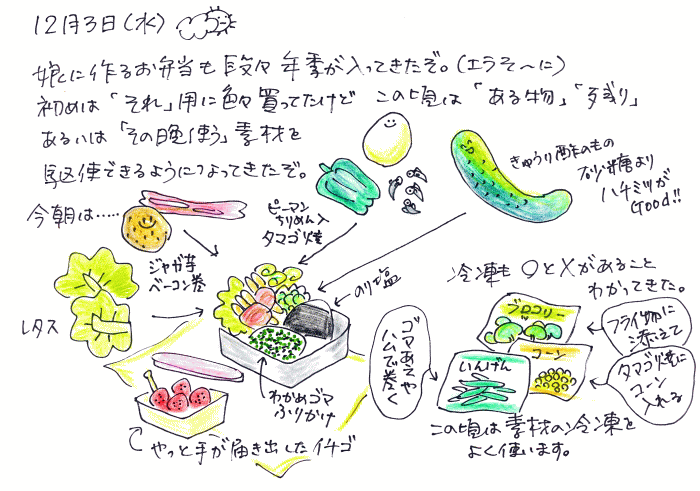 12月3日(水)
娘に作るお弁当も段々年季が入ってきたぞ。(エラそ〜に)
初めは「それ」用に色々買ってたけど この頃は「ある物」「残り」
あるいは「その晩使う」素材を
駆使できるようになってきたぞ。
今朝は……
ジャガ芋
ベーコン巻
ピーマン
ちりめん入
タマゴ焼
きゅうり酢のもの
砂糖より
ハチミツが
Good!!
レタス
のり塩
わかめゴマ
ふりかけ
やっと手が届き出したイチゴ
冷凍も ○と×があること
わかってきた。
ブロコリー
コーン
いんげん
フライ物に
添えて
タマゴ焼に
コーン
入れる
ゴマあえや
ハムで巻く
この頃は素材の冷凍を
よく使います。